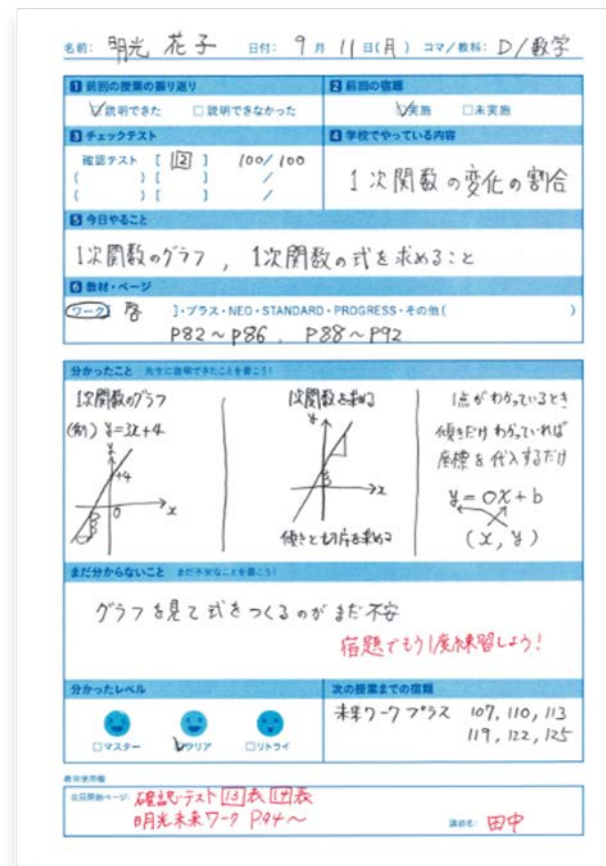 名前: 明光 花子 日付: 9月 11日(月) コマ/教科: D/数学
1 前回の授業の振り返り 2 前回の宿題
☑説明できた □説明できなかった ☑実施 □未実施
3 チェックテスト 4 学校でやっている内容
確認テスト [ 12 ] 100/100
( ) [ ] /
( ) [ ] /
1次関数の変化の割合
5 今日やること
1次関数のグラフ, 1次関数の式を求めること
6 教材・ページ
ワーク[ 啓 ]・プラス・NEO・STANDARD・PROGRESS・その他( )
P82〜P86, P88〜P92
分かったこと 先生に説明できたことを書こう!
1次関数のグラフ
(例) y=3x+4
y
+4
0
x
1次関数を求める
y
x
傾きと切片を求める
1点がわかっているとき
傾きだけわかっていれば
座標を代入するだけ
y=0x+b
(x, y)
まだ分からないこと まだ不安なことを書こう!
グラフを見て式をつくるのがまだ不安
宿題でもう1度練習しよう!
分かったレベル 次の授業までの宿題
□マスター ☑クリア □リトライ
未来ワークプラス 107, 110, 113
119, 122, 125
次回開始ページ: 確認テスト 13表 14表
明光未来ワーク P94〜
講師名: 田中